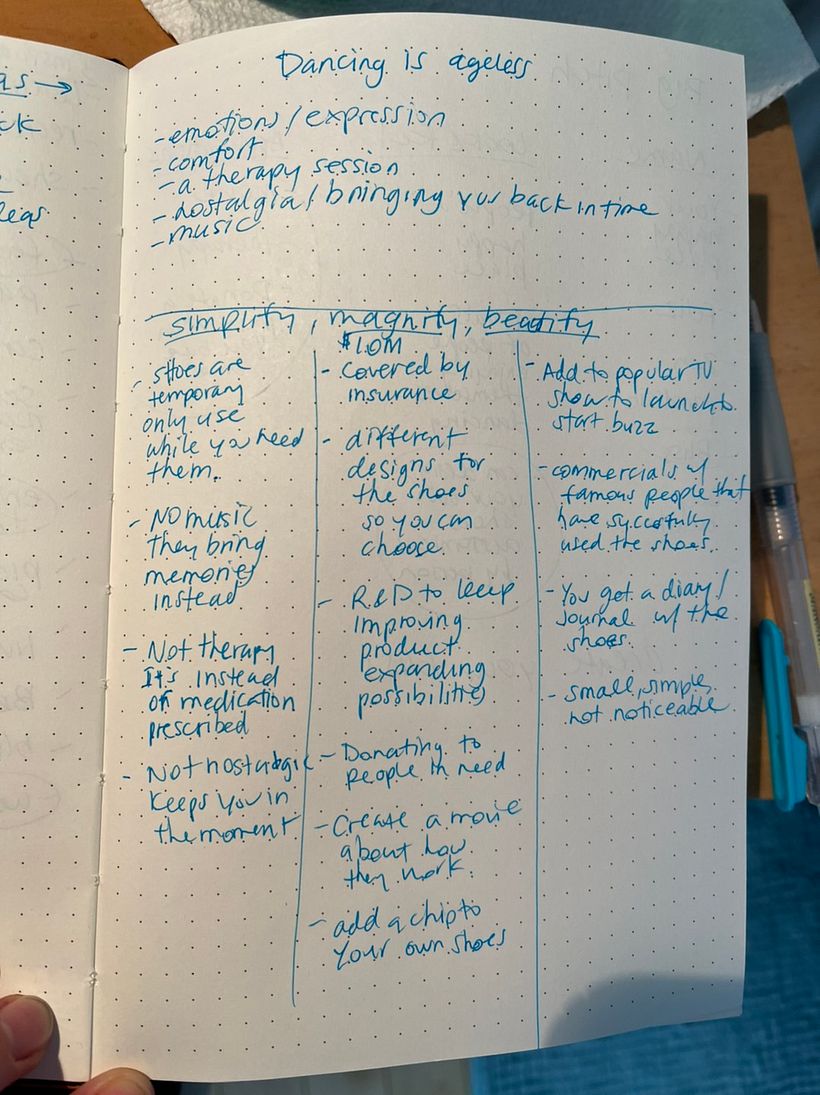 Dancing is ageless
- emotions / expression
- comfort
- a therapy session
- nostalgia / bringing you back in time
- music
simplify, magnify, beautify
$1.0M
- shoes are
temporary
only use
while you need
them.
- NO music
they bring
memories
instead
- Not therapy
It's instead
of medication
prescribed
- Not nostalgic
keeps you in
the moment
- covered by
insurance
- different
designs for
the shoes
so you can
choose
- R&D to keep
improving
product
expanding
possibilities
- Donating to
people in need
- Create a movie
about how
they work.
- add a chip to
your own shoes
- Add to popular TV
show to launch to
start buzz
- commercials w/
famous people that
have successfully
used the shoes.
- You get a diary /
journal w/ the
shoes.
- small, simple,
not noticeable